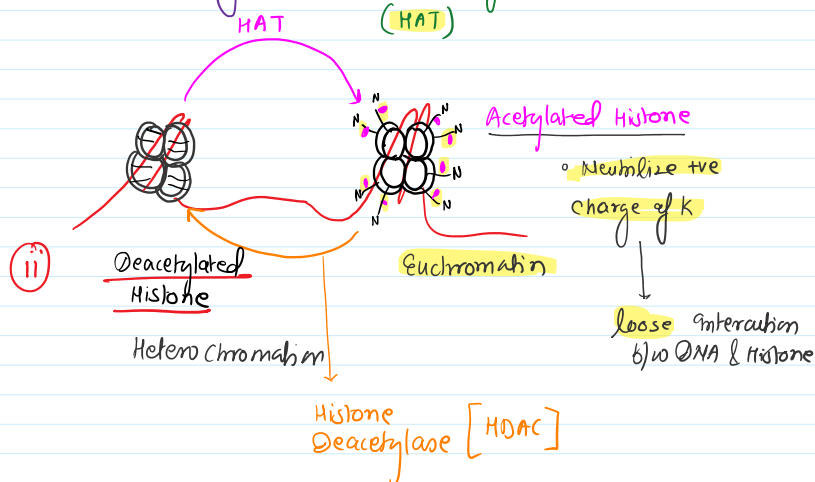 HAT
(HAT)
N
N
N
N
N
N
N
N
Acetylated Histone
Neutrilize +ve
Charge of K
loose interaction
b/w DNA & Histone
Euchromatin
ii
Deacetylated
Histone
Hetero Chromatin
Histone
Deacetylase [HDAC]